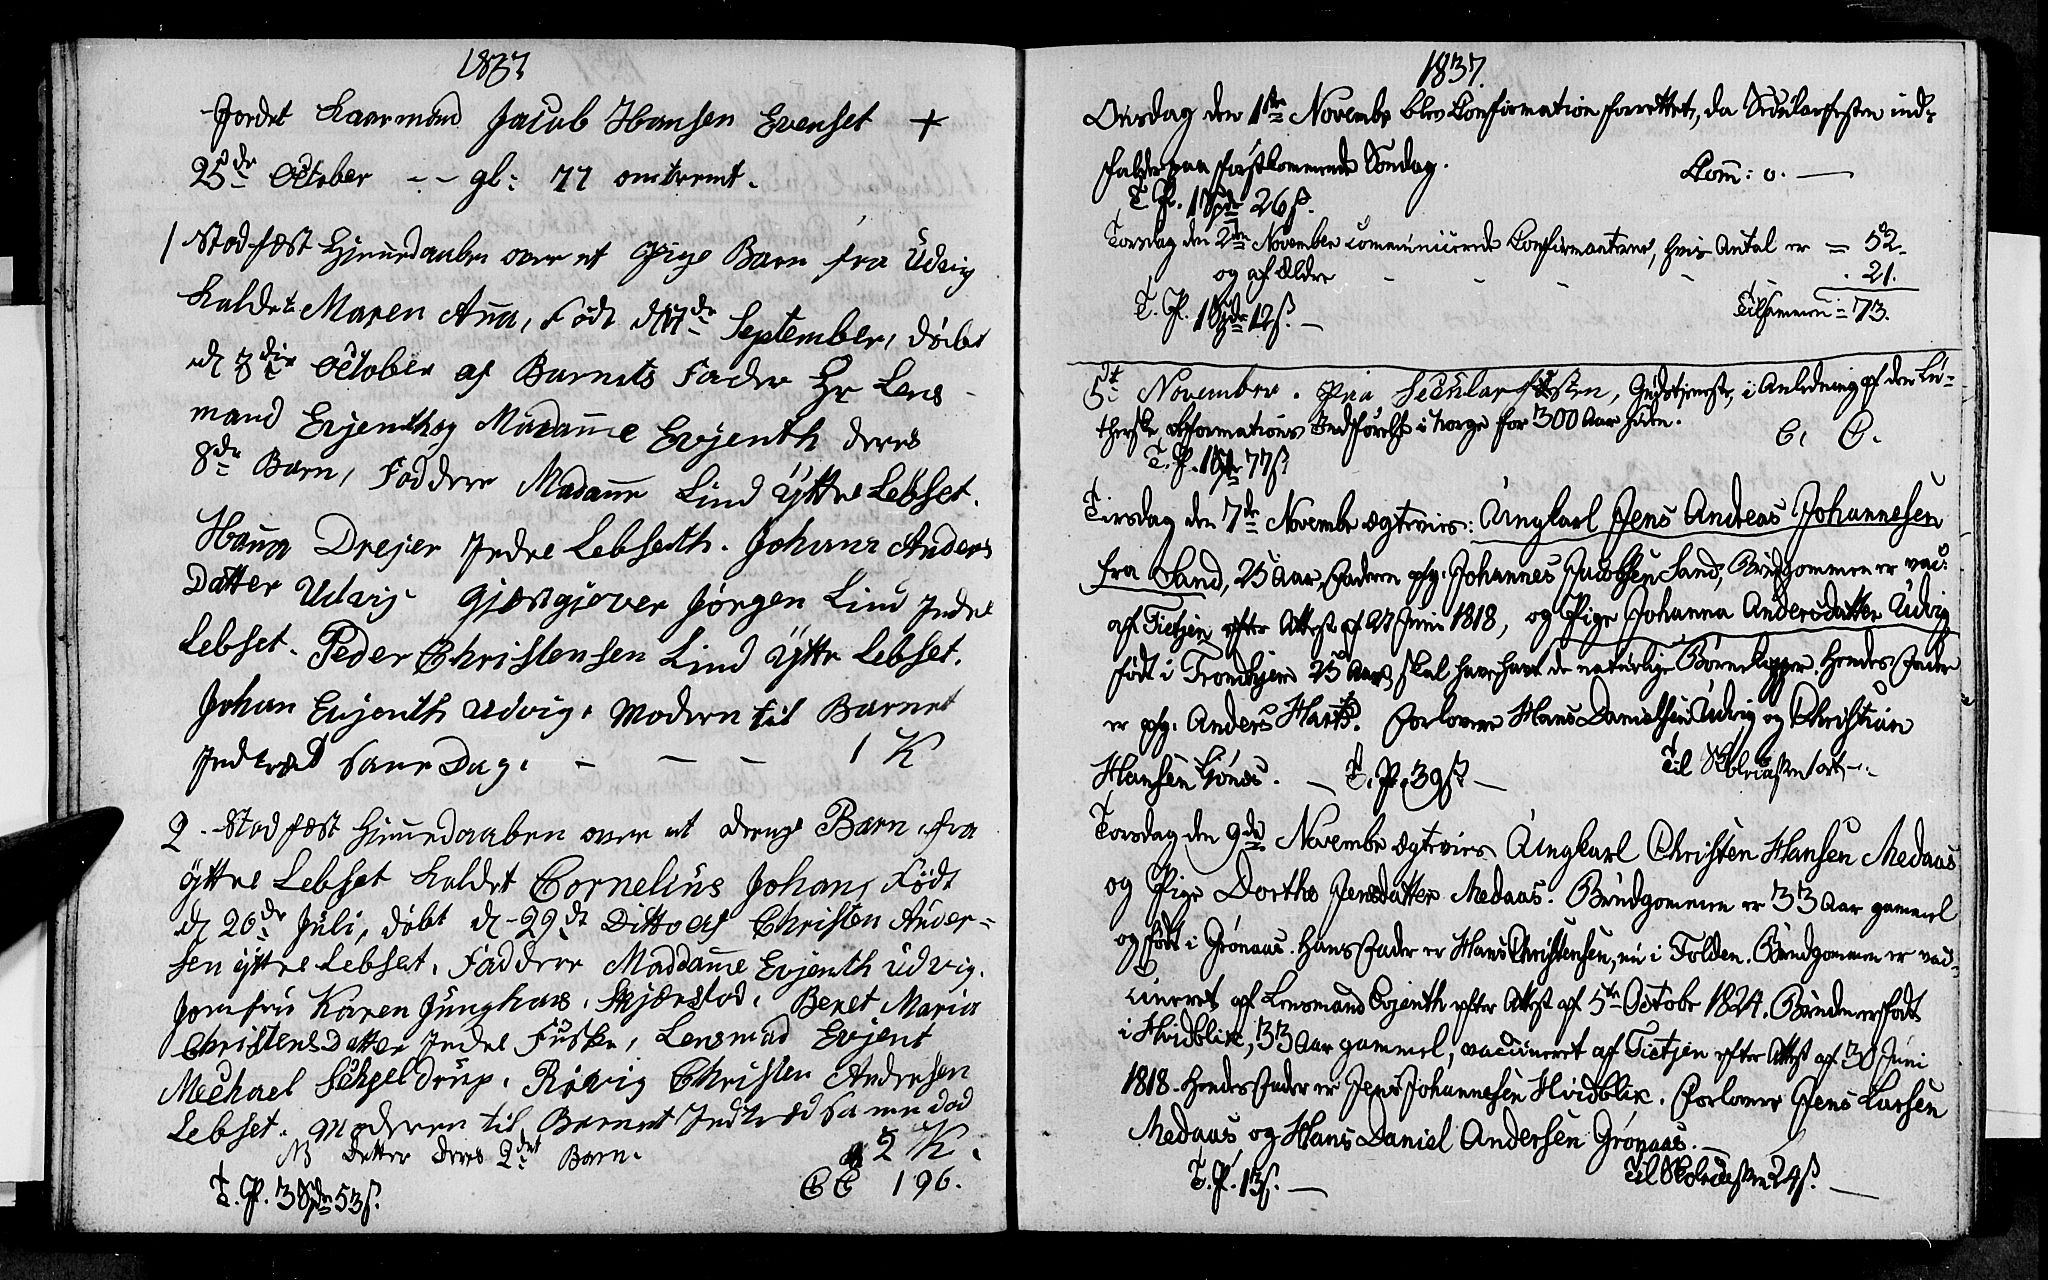 1837
Jordet Kaarmand Jacob Hansen Evenset +
25de October - - gl: 77 omtrent.
1 Stadfæst Hjemdaaben over et Pige Barn fra Udvig
Kaldet Maren Ana, Født d 17de September, døbt
d 3die October af Barnets Fader Hr Lens
mand Evjenth og Madame Evjenth deres
8de Barn, Faddere Madame Lind Yttre Lebset.
Hana Drejer Indre Lebseth. Johana Anders
Datter Udvig Gjestgiever Jørgen Lind Indre
Lebset. Peder Christensen Lind Yttre Lebset.
Johan Evjenth Udvig. Moderen til Barnet
Indtræd Same Dag. - - - 1 K
2. Stadfæst Hjemedaaben over et drenge Barn, fra
Yttre Lebset Kaldet Cornelius Johan, Født
d 20de Juli, døbt d 29de Ditto af Christen Ander-
sen Yttre Lebset. Faddere Maddame Evjenth Udvig.
Jomfru Karen Junghans, Skjærstad. Beret Maria
Christens Datter Indre Fuske, Lensmad Evjent
Mechael Schjeldrup. Røvig Christen Andersen
Lebset. Moderen til Barnet Indtræd Same dad
NB Detter deres 2det Barn. 2 K.
T. P. 3 Spd 53 ß. CC 196.
1837.
Onsdag den 1ste Novembr blev Confirmation forrettet, da Secularfesten ind-
falder paa førstkommende Søndag. Com: 0. —
T. P. 1 Spd 26 ß.
Torsdag den 2den November communicerede Confirmanterne, hvis Antal er = 52.
og af Ældre - - - - 21.
T. P. 1 Spd 12 ß. — Tilsammen = 73.
5te November. Paa Secularfesten, Gudstjeneste, i Anledning af den Lu-
therske Reformations Indførelse i Norge for 300 Aar siden.
T. P. 1 Spd 77 ß C. C.
Tirsdag den 7de Novembr ægtevies: Ungkarl Jens Andreas Johannesen
fra Sand, 25 Aar, Faderen Johannes Jacobsen Sand, Brudgommen er vac:
af Tietjen efter Attest af 27 Juni 1818, og Pige Johanna Andersdatter Udvig
født i Trondhjem 25 Aar, skal have havt de naturlige Børnekopper. Hendes Fader
er Anders Harts. Forlovere Hans Danielsen Udvig og Christian
Hansen — T. P. 39 ß — Til Skolekassen ort —
Torsdag den 9de Novembr ægtevies Ungkarl Christen Hansen Medaas
og Pige Dorthe Jensdatter Medaas. Brudgommen er 33 Aar gammel
og født i Grønaas. Hans Fader er Hans Christensen, nu i Folden. Brudgommen er vac-
cineret af Lensmand Evjenth efter Attest af 5te Octobr 1824. Bruden er født
i Hvidblik, 33 Aar gammel, vaccineret af Tietjen efter Attest af 30 Juni
1818. Hendes Fader er Jens Johannesen Hvidblik. Forlovere Jens Larsen
Medaas og Hans Daniel Andersen Grønaas. —
T. P. 13 ß. — Til Skolekassen 24 ß. —